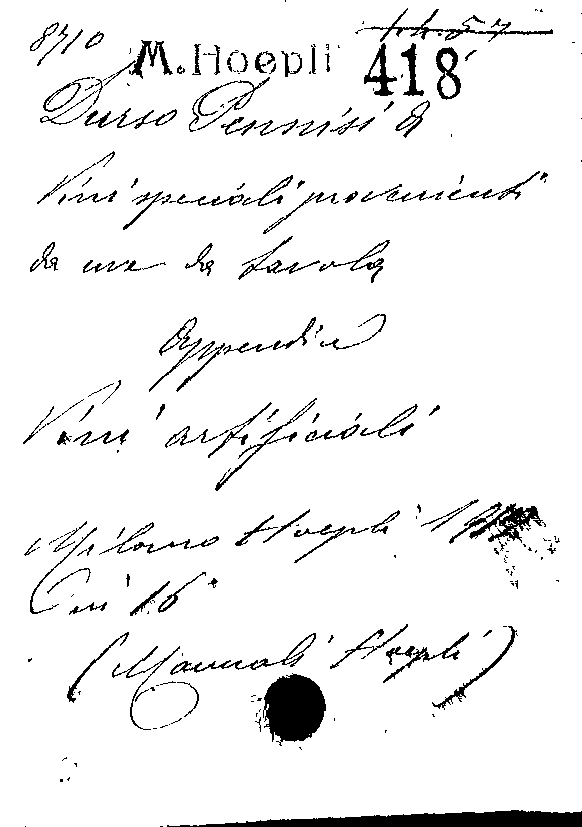 8710 M. Hoepli 418
Durso Pennisi A
Vini speciali provenienti
da uva da tavola
Appendice
Vini artificiali
Milano Hoepli
in 16°
(Manuali Hoepli)